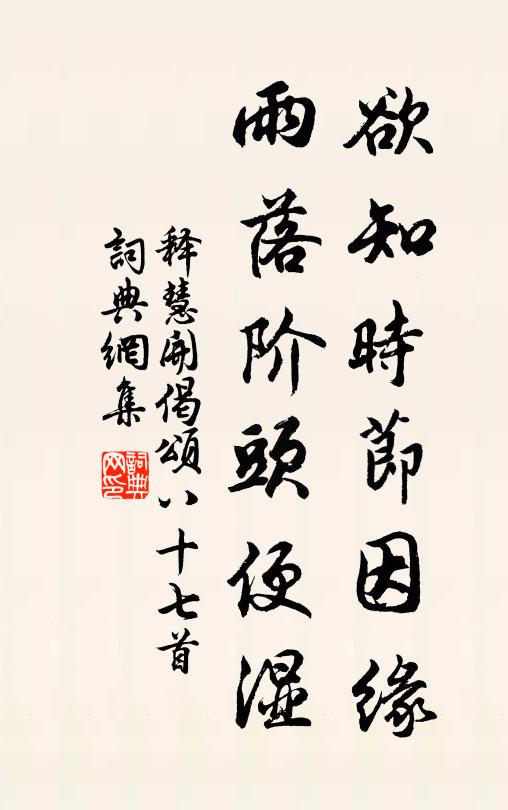 欲知時節因緣
雨落阶頭便湿
释慧開偈頌八十七首
詞典網集
詞典网印